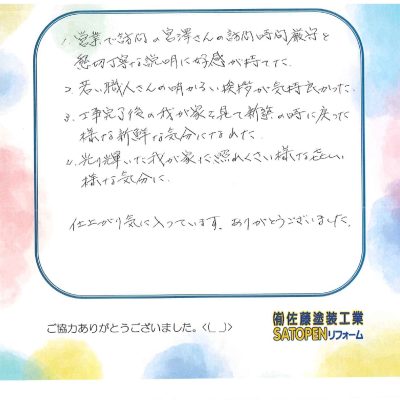 1. 営業で訪問の宮澤さんの訪問時間厳守と
懇切丁寧な説明に好感が持てた.
2. 若い職人さんの明かるい挨拶が気持良かった.
3. 工事完了後の我が家を見て新築の時に戻った
様な新鮮な気分になれた.
4. 光り輝いた我が家に照れくさい様な
様な気分に.
仕上がり気に入っています. ありがとうございました.
ご協力ありがとうございました。<(_ _)>
㈲佐藤塗装工業
SATOPENリフォーム